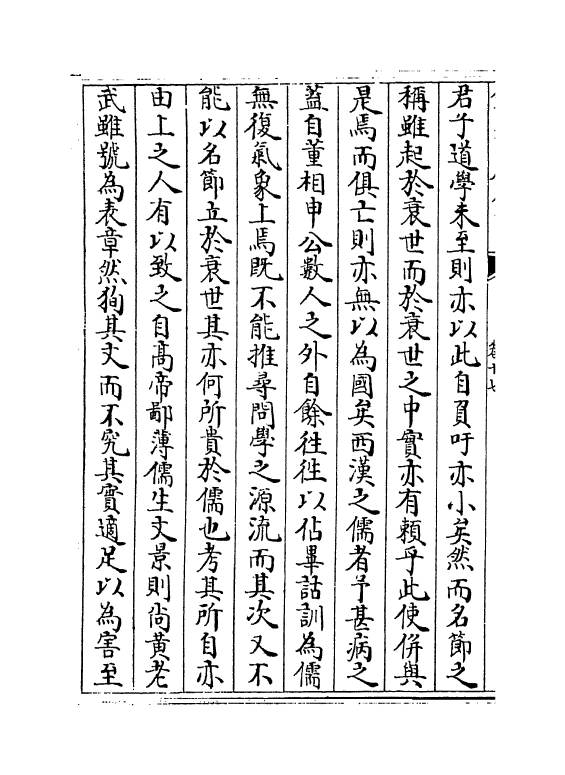 君子道學未至則亦以此自負吁亦小矣然而名節之
稱雖起於衰世而於衰世之中實亦有頼乎此使併與
是焉而俱亡則亦無以為國矣西漢之儒者予甚病之
蓋自董相申公數人之外自餘徃徃以佔畢詁訓為儒
無復氣象上焉既不能推尋問學之源流而其次又不
能以名節立於衰世其亦何所貴於儒也考其所自亦
由上之人有以致之自髙帝鄙薄儒生文景則尚黄老
武雖號為表章然狥其文而不究其實適足以為害至
卷十七